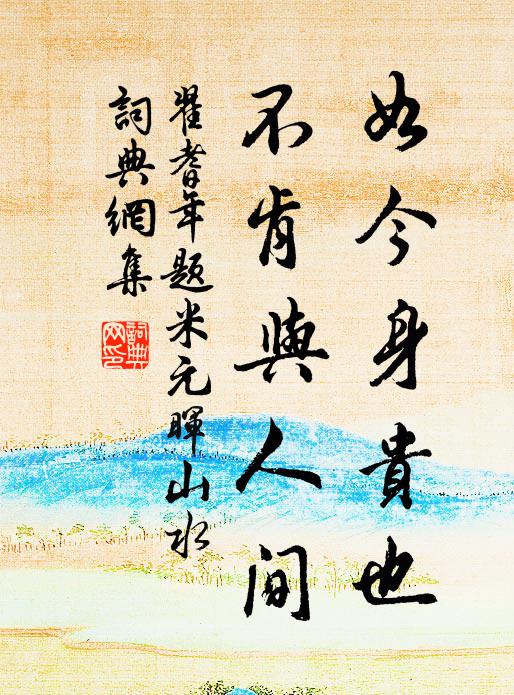 如今身貴也
不肯與人间
翟耆年題米元暉山水
詞典網集
詞典網印